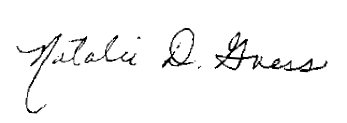 Natalie D. Guess